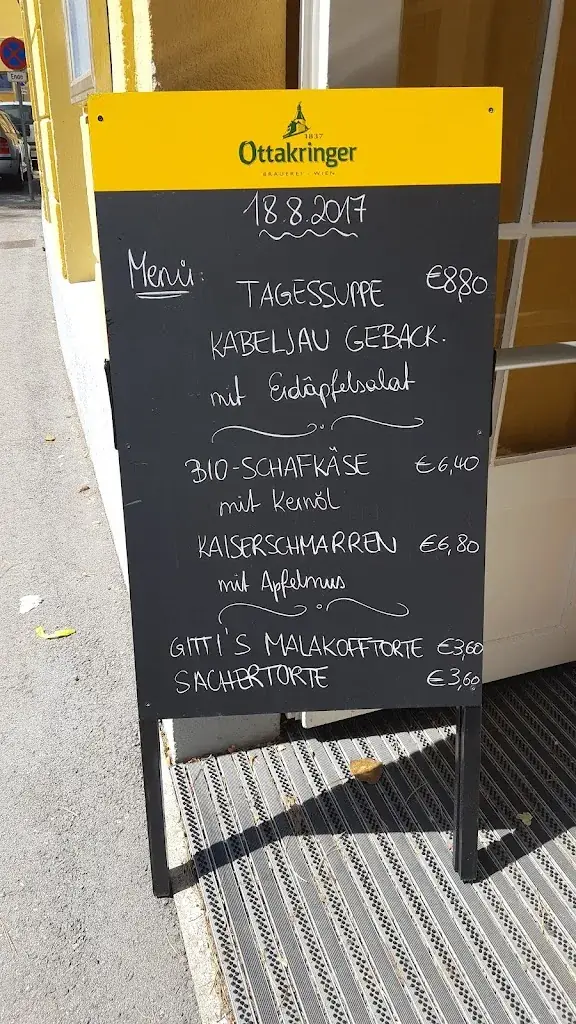 Ende
1837
Ottakringer
BRAUEREI · WIEN
18.8.2017
Menü: TAGESSUPPE €8,80
KABELJAU GEBACK.
mit Erdäpfelsalat
BIO-SCHAFKÄSE €6,40
mit Kernöl
KAISERSCHMARREN €6,80
mit Apfelmus
GITTI'S MALAKOFFTORTE €3,60
SACHERTORTE €3,60